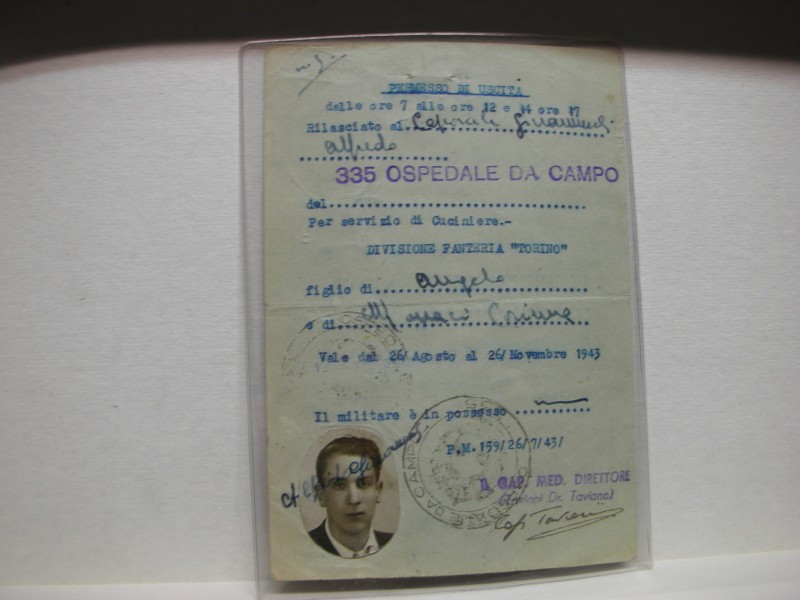 PERMESSO DI USCITA
dalle ore 7 alle ore 12 e 14 ore 17
Rilasciato al.
Alfredo
335 OSPEDALE DA CAMPO
del
Per servizio di Cuciniere.-
DIVISIONE FANTERIA "TORINO"
figlio di Angelo
e di
Vale dal 26/Agosto al 26/Novembre 1943
Il militare è in possesso
P.M. 159/26/7/43/
IL CAP. MED. DIRETTORE
Dr. Taviano)